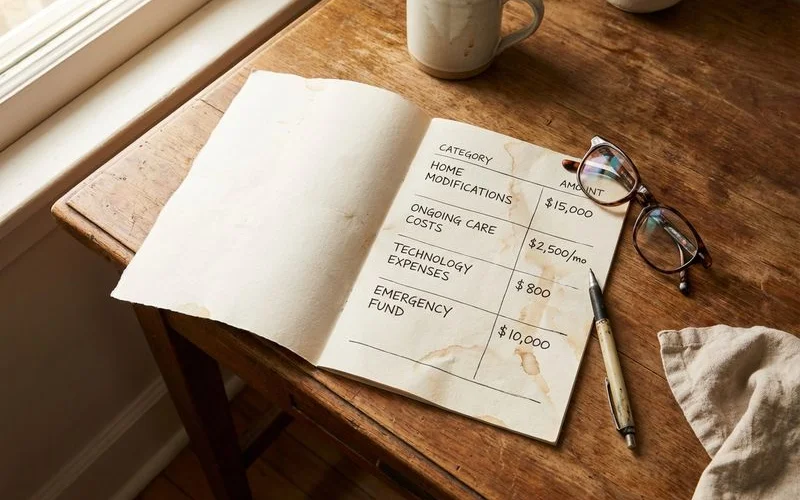 CATEGORY AMOUNT
HOME
MODIFICATIONS $15,000
ONGOING CARE
COSTS $2,500/mo
TECHNOLOGY
EXPENSES $800
EMERGENCY
FUND $10,000